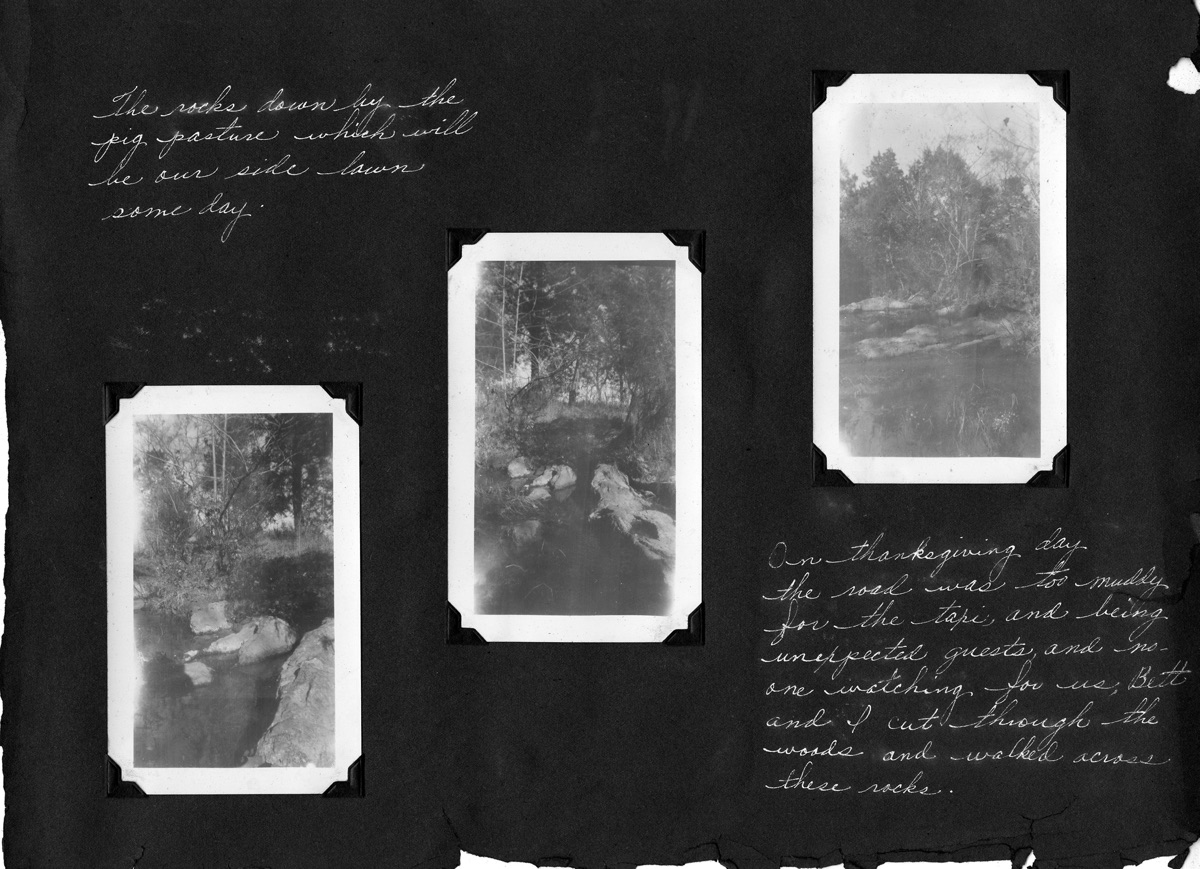 The rocks down by the
pig pasture which will
be our side lawn
some day.
On thanksgiving day
the road was too muddy
for the taxi, and being
unexpected guests, and no-
one watching for us, Bett
and I cut through the
woods and walked across
these rocks.